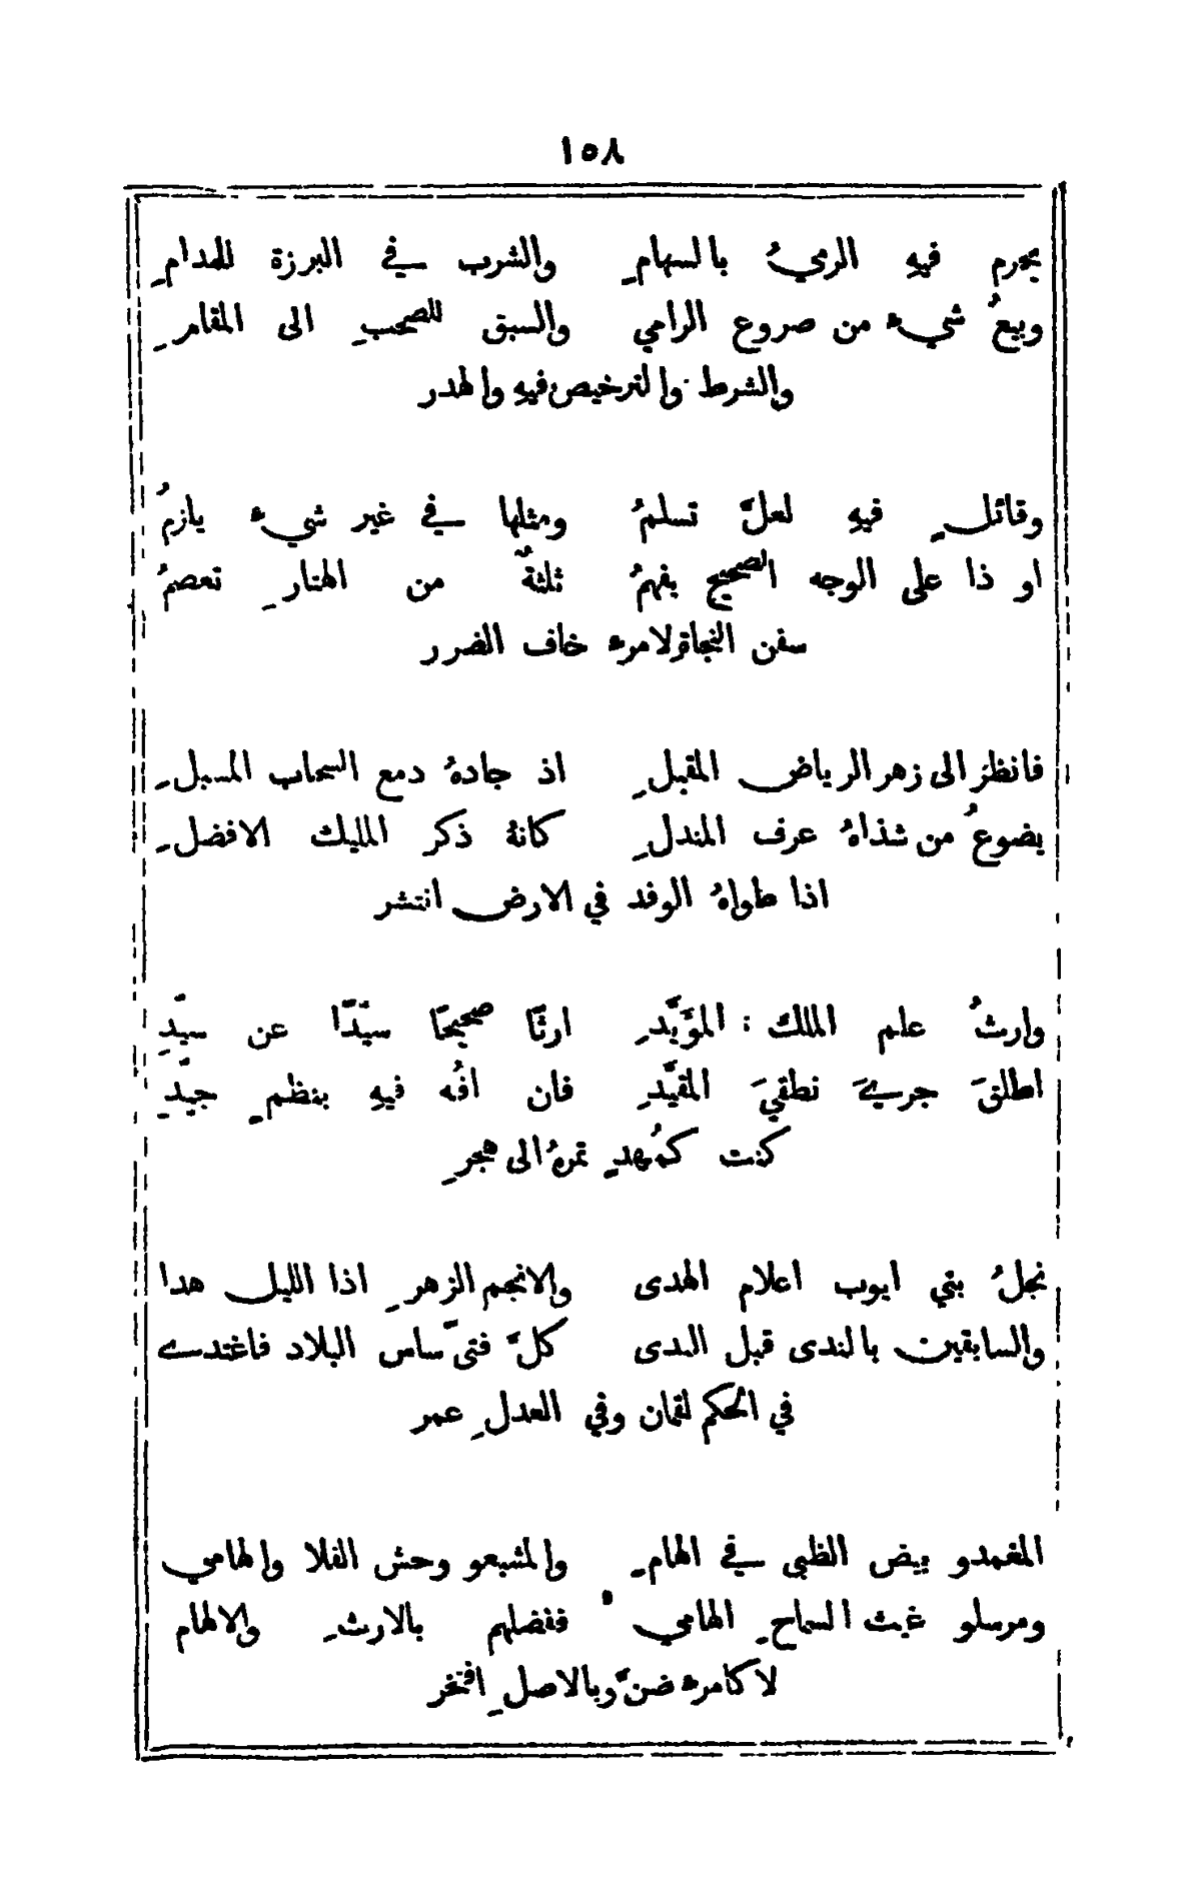 ١٥٨
يحرم فيهِ الرميُ بالسهامِ والشرب في البرزة للمدامِ
وبيعُ شيء من صروع الرامي والسبق للصحبِ الى المقامِ
والشرط والترخيص فيهِ والهدر
وقائلٍ فيهِ لعلَّ تسلمُ ومثلها في غير شيء يلزمُ
او ذا على الوجه الصحيح يفهمُ ثلثةٌ من الهتارِ تعصمُ
سفن النجاة لامرء خاف الضرر
فانظر الى زهر الرياض المقبلِ اذ جادهُ دمع السحاب المسبلِ
يضوعُ من شذاهُ عرف المندلِ كانهُ ذكر المليك الافضلِ
اذا طواهُ الوفد في الارض انتشر
وارثُ علم الملك المؤَيَّدِ ارثًا صحيحًا سيّدًا عن سيّدِ
اطلقَ جريَ نطقيَ المقيَّدِ فان افُه فيهِ بنظمٍ جيّدِ
كنت كمُهدٍ تمرهُ الى هجرِ
نجلُ بني ايوب اعلام الهدى والانجم الزهرِ اذا الليل هدا
والسابقين بالندى قبل الندى كلَّ فتىً ساس البلاد فاغتدى
في الحكم لقمان وفي العدلِ عمر
المغمدو بيض الظبى في الهامِ والمشبعو وحش الفلا والهامي
ومرسلو غيث السماحِ الهامي ففضلهم بالارثِ والالهام
لا كامرء ضنَّ وبالاصلِ افتخر